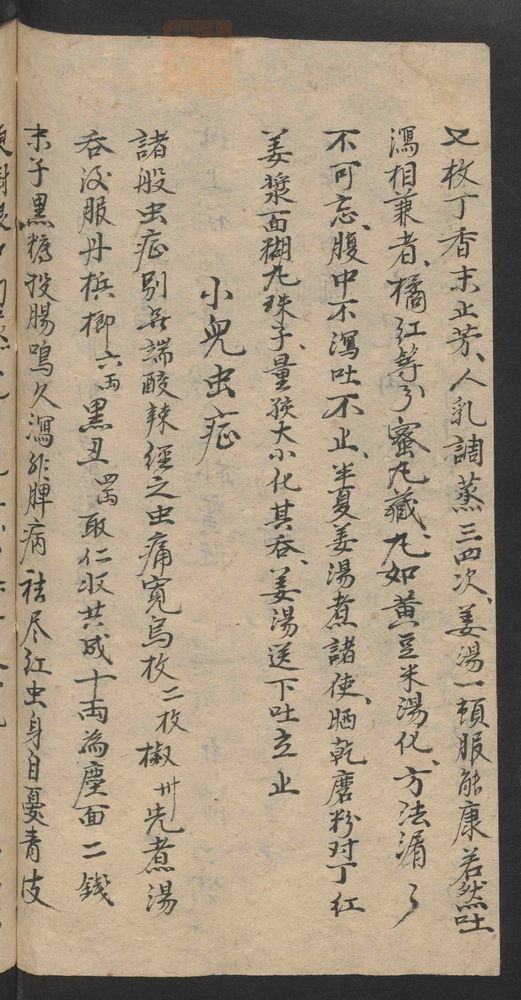 又枚丁香末止芳、人乳調蒸三四次、姜湯一頓服能康若然吐
瀉相兼者、橘紅等分蜜丸藏、丸如黄豆米湯化、方法湏々
不可忘、腹中不瀉吐不止、半夏姜湯煮諸使、晒乾磨粉対丁紅
姜漿面糊丸珠子、量孩大小化其吞、姜湯送下吐立止
小兒虫症
諸般虫症別無端酸辣經之虫痛寬烏枚二枚椒卅先煮湯
吞没服丹梹榔六両黑丑四両取仁収共成十両為塵面二錢
末子黑糖投腸鳴久瀉非脾病祛尽紅虫身自憂青皮